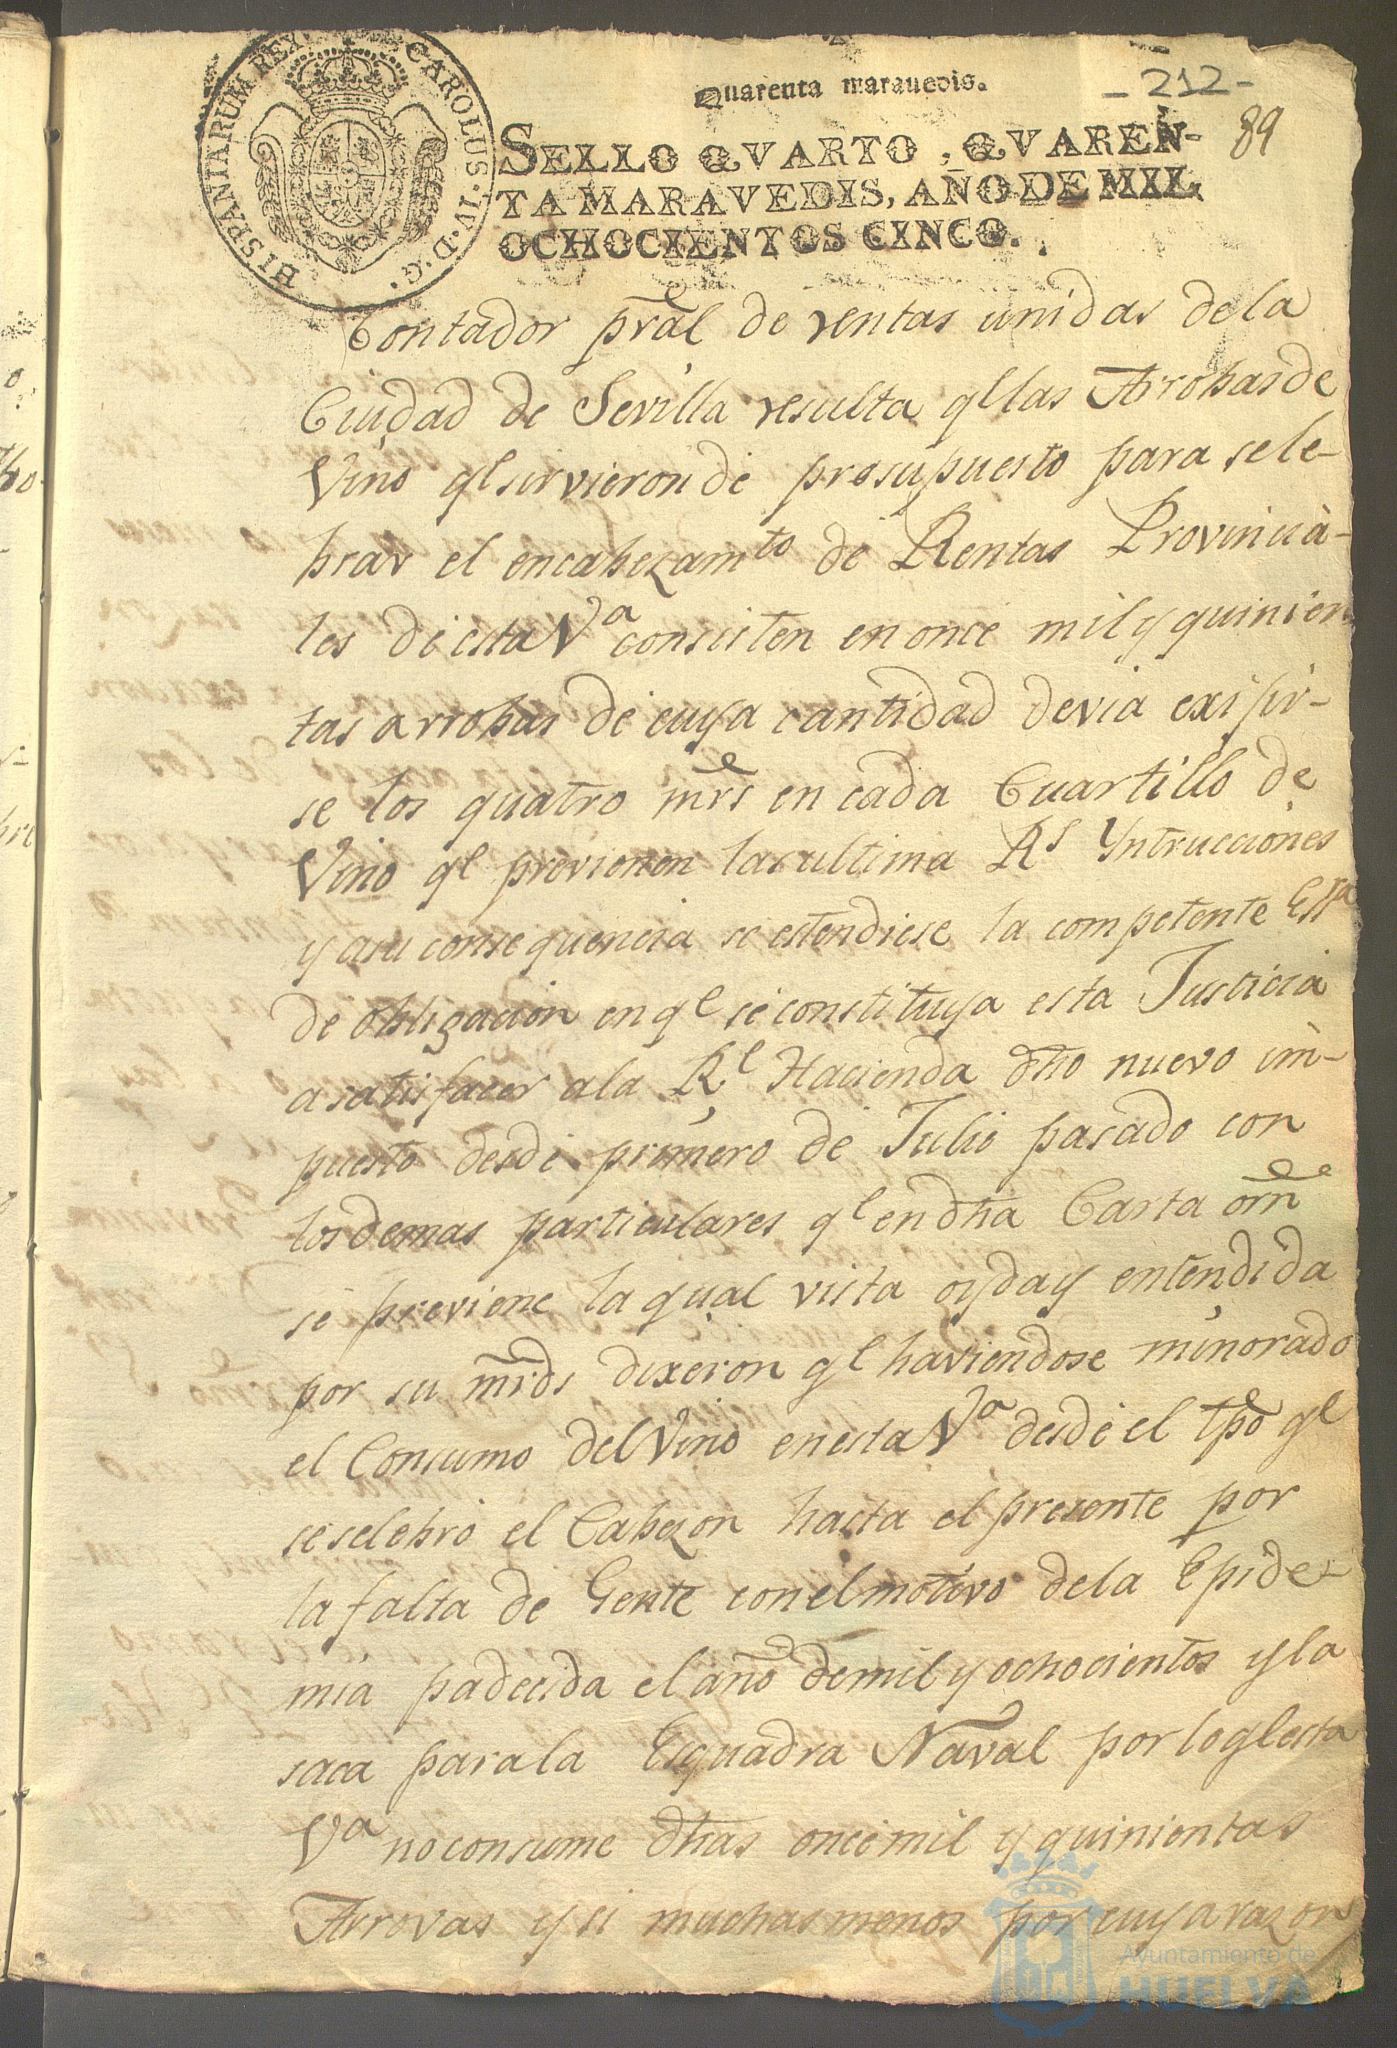 Quarenta marauedis.
- 212 -
89
HISPANIARUM REX. CAROLUS · IV · D · G ·
SELLO QVARTO, QVAREN-
TA MARAVEDIS, AÑO DE MIL
OCHOCIENTOS CINCO.
Contador pral de rentas unidas de la
Ciudad de Sevilla resulta ql las Arrobas de
Vino ql sirvieron de presupuesto para sele-
brar el encabezamto de Rentas Provincia-
les de esta Va consisten en once mil y quinien
tas arrobas de cuya cantidad devia exijir-
se los quatro mrs en cada Cuartillo de
Vino ql previenen las ultima Rs Yntrucciones
y asu consequencia se estendiese la competente Essra
de obligacion en ql se constituya esta Justicia
a satisfacer ala Rl Hacienda dho nuevo im-
puesto desde primero de Julio pasado con
los demas particulares ql en dha Carta orn
se previene la qual vista oyda y entendida
por su mrds dixeron ql haviendose minorado
el Consumo del Vino en esta Va desde el tpo ql
se selebro el Cabezon hasta el presente por
la falta de Gente con el motivo de la Epide-
mia padecida el año de mil y ochocientos y la
saca para la Esquadra Naval por lo ql esta
Va no consume dhas once mil y quinientas
Arrovas y si muchas menos por cuya razon
Ayuntamiento de
HUELVA